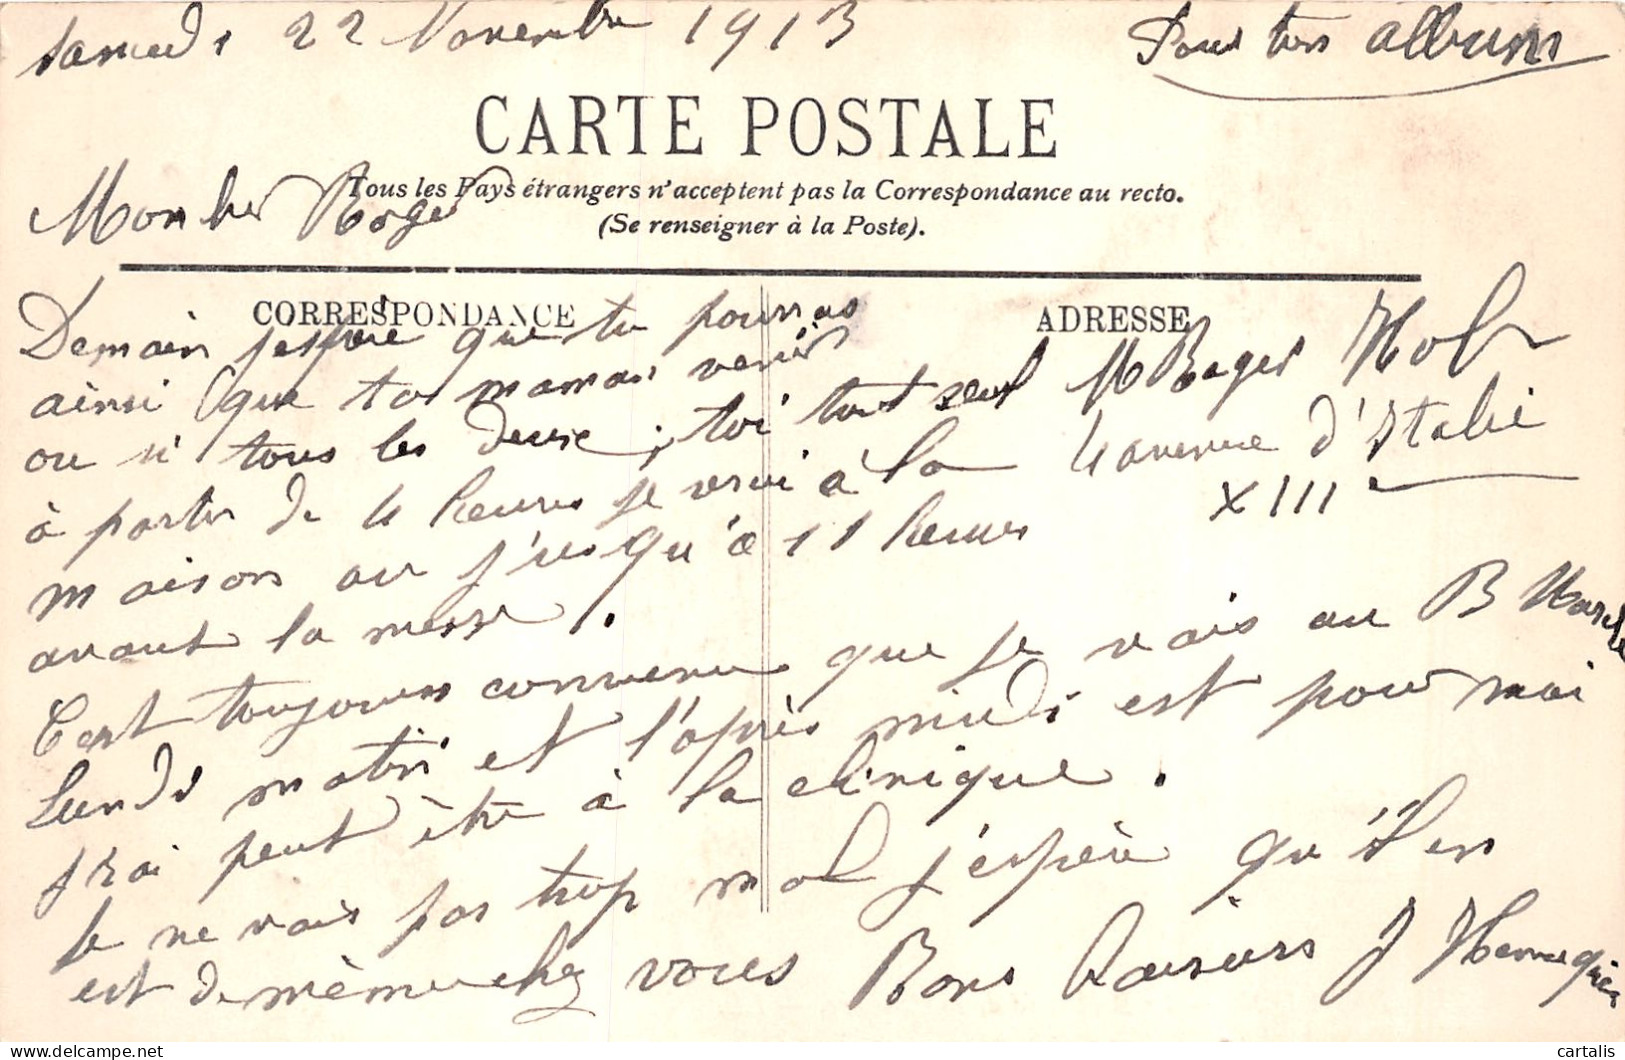 Samedi 22 Novembre 1913
Pour ton album
CARTE POSTALE
Tous les Pays étrangers n'acceptent pas la Correspondance au recto.
(Se renseigner à la Poste).
Mon cher Roger
CORRESPONDANCE
ADRESSE
Demain j'espère que tu pourras
ainsi que ta maman venir
ou si tous les deux, toi tout seul
à partir de 4 heures je serai à la
maison ou j'usqu'à 11 heures
avant la messe.
M Roger
4 avenue d'Italie
XIIIe
C'est toujours convenu que je vais au B
Lundi matin et l'après midi est pour moi
j'irai peut être à la clinique.
Je ne vais pas trop mal j'espère qu'il en
est de même chez vous Bons Baisers J
cartalis